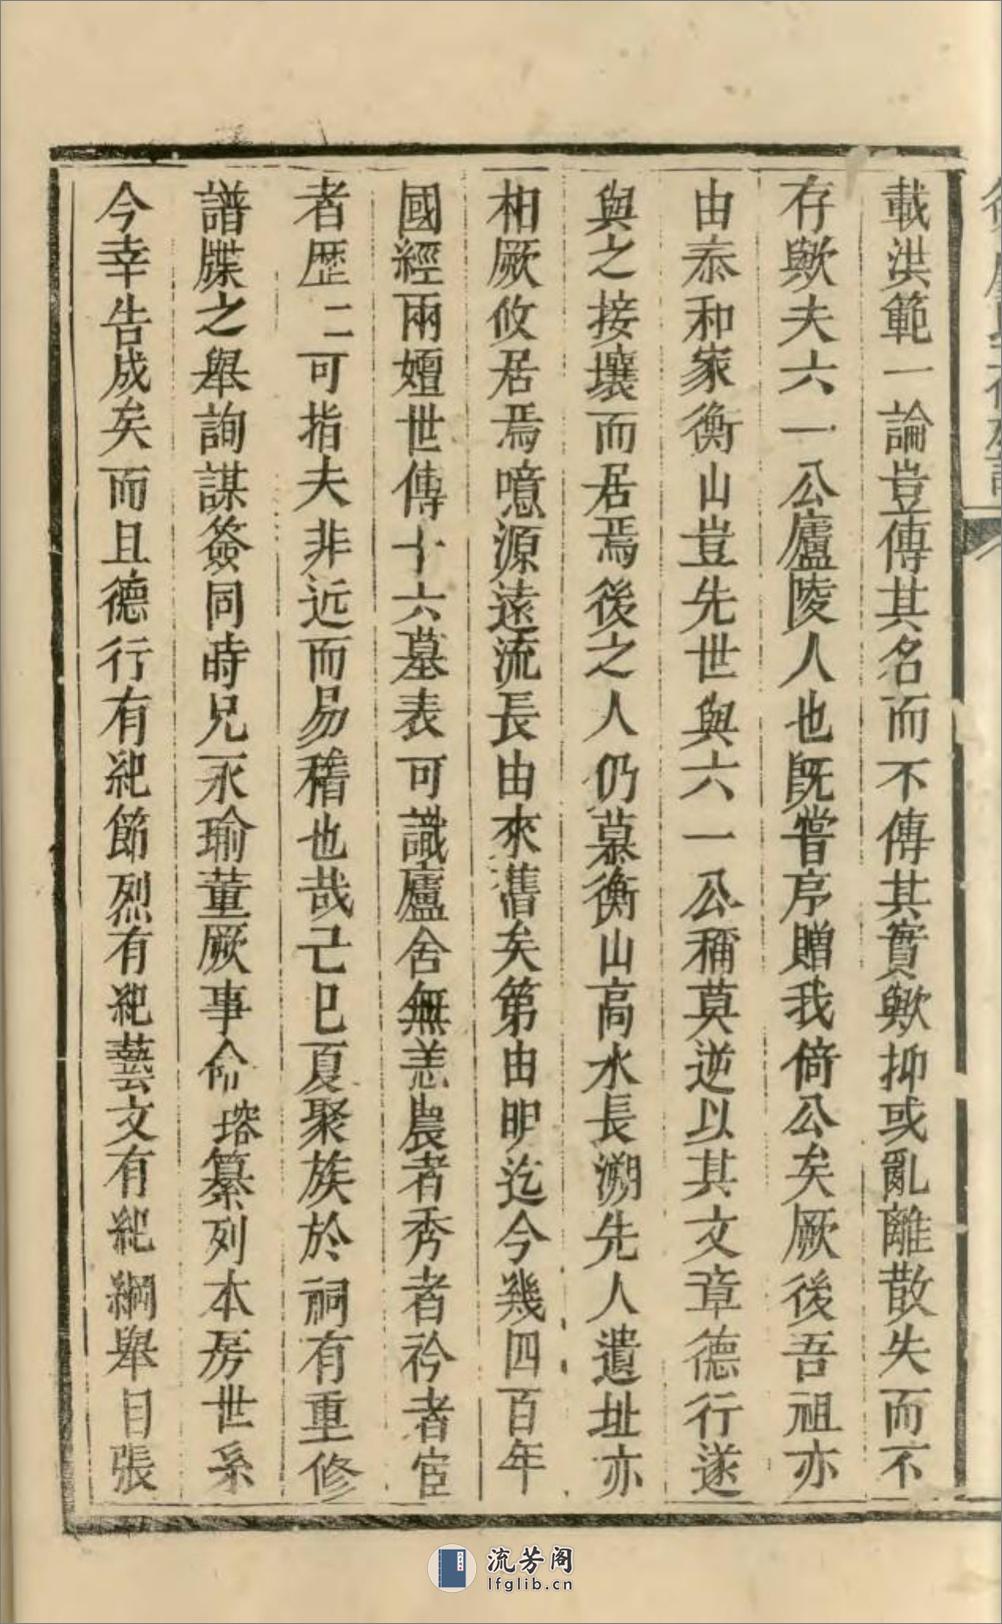 載洪範一論豈傳其名而不傳其實歟抑或亂離散失而不
存歟夫六一公廬陵人也既嘗序贈我倚公矣厥後吾祖亦
由泰和家衡山豈先世與六一公稱莫逆以其文章德行遂
與之接壤而居焉後之人仍慕衡山高水長溯先人遺址亦
相厥攸居焉噫源遠流長由來舊矣第由明迄今幾四百年
國經兩嬗世傳十六墓表可識廬舍無恙農者秀者衿者宦
者歷二可指夫非近而易稽也哉己巳夏聚族於祠有重修
譜牒之舉詢謀簽同時兄永瑜董厥事命瑢纂列本房世系
今幸告成矣而且德行有紀節烈有紀藝文有紀綱舉目張
流芳阁
lfglib.cn